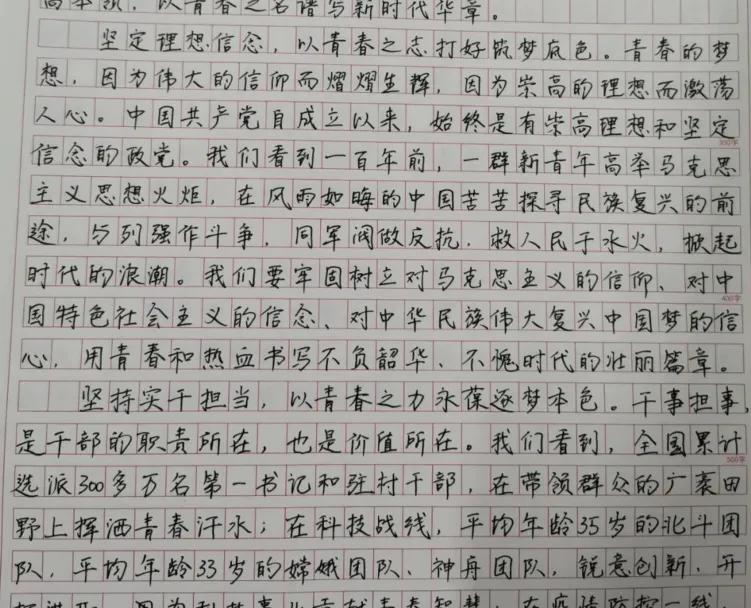 高本领，以青春之名谱写新时代华章。
坚定理想信念，以青春之志打好筑梦底色。青春的梦
想，因为伟大的信仰而熠熠生辉，因为崇高的理想而激荡
人心。中国共产党自成立以来，始终是有崇高理想和坚定
300字
信念的政党。我们看到一百年前，一群新青年高举马克思
主义思想火炬，在风雨如晦的中国苦苦探寻民族复兴的前
途，与列强作斗争，同军阀做反抗，救人民于水火，掀起
时代的浪潮。我们要牢固树立对马克思主义的信仰、对中
400字
国特色社会主义的信念、对中华民族伟大复兴中国梦的信
心，用青春和热血书写不负韶华、不愧时代的壮丽篇章。
坚持实干担当，以青春之力永葆逐梦本色。干事担事，
是干部的职责所在，也是价值所在。我们看到，全国累计
500字
选派300多万名第一书记和驻村干部，在带领群众的广袤田
野上挥洒青春汗水；在科技战线，平均年龄35岁的北斗团
队、平均年龄33岁的嫦娥团队、神舟团队，锐意创新、开